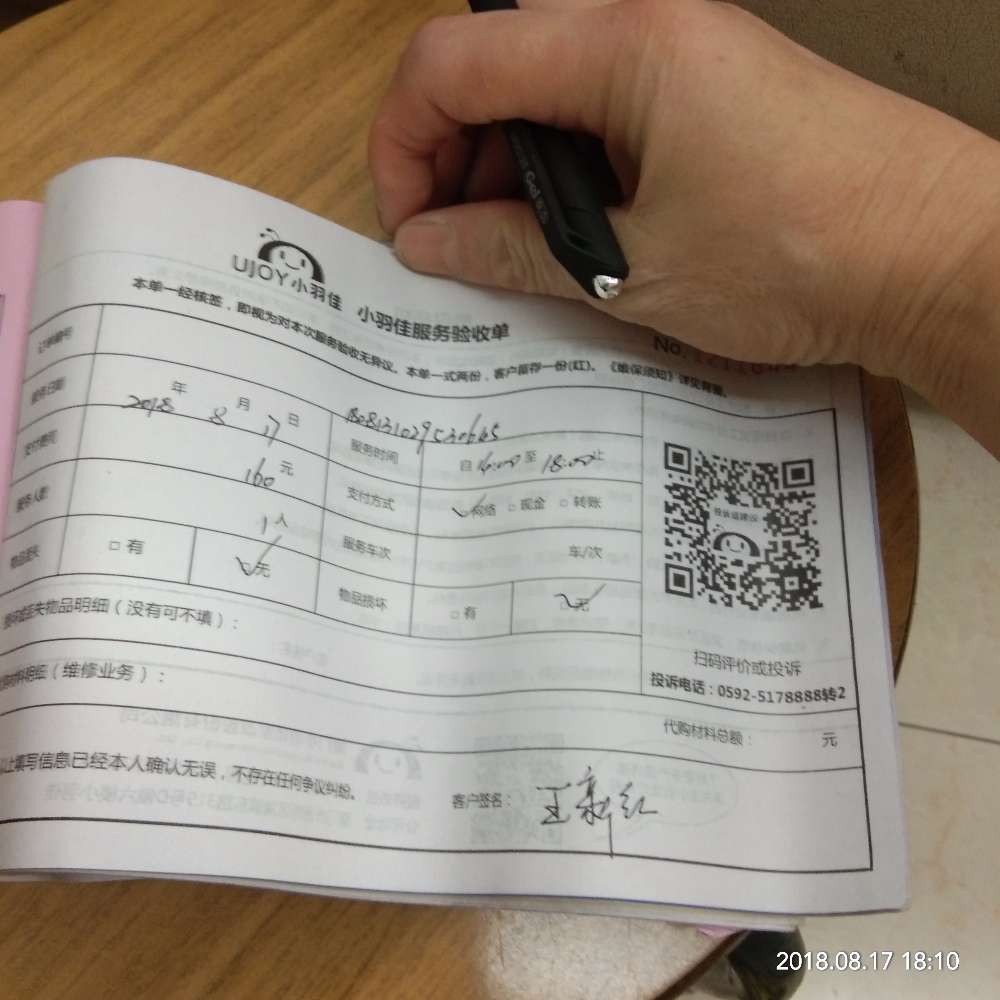 UJOY小羽佳 小羽佳服务验收单
本单一经核签，即视为对本次服务验收无异议。本单一式两份，客户留存一份(红)。《维保须知》详见背面。
No.
订单编号 1808131029530645
服务日期 2018年8月17日 服务时间 自14:00至18:00止
支付费用 160元 支付方式 网络 □现金 □转账
服务人数 1人 服务车次 车/次
物品丢失 □有 无 物品损坏 □有 无
损坏或丢失物品明细（没有可不填）：
材料明细（维修业务）：
投诉或建议
扫码评价或投诉
投诉电话：0592-5178888转2
代购材料总额： 元
以上填写信息已经本人确认无误，不存在任何争议纠纷。
客户签名：王新红
Gel
2018.08.17 18:10